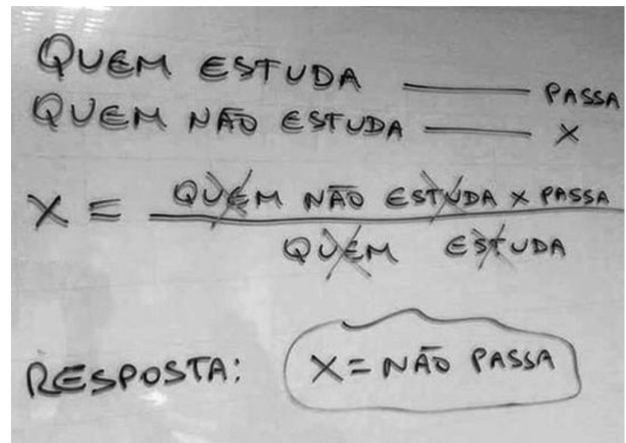 QUEM ESTUDA —— PASSA
QUEM NÃO ESTUDA —— X
X = QUEM NÃO ESTUDA X PASSA
QUEM ESTUDA
RESPOSTA: X = NÃO PASSA